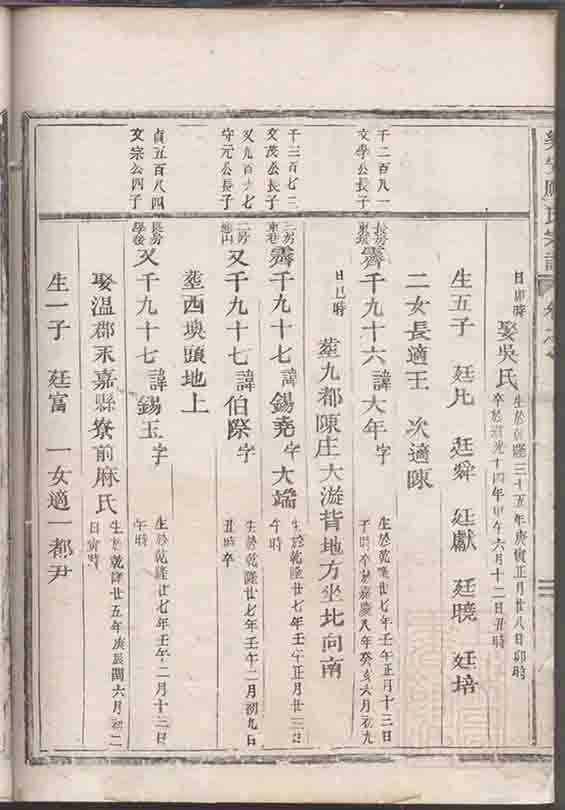 氏宗譜
日卯時
娶吳氏
生於乾隆三十五年庚寅正月廿八日卯時
卒於道光十四年甲午六月十二日丑時
生五子 廷凡 廷舜 廷獻 廷曉 廷培
二女長適王 次適陳
千二百八一
文學公長子
長房
東巷
霽千九十六諱大年字
生於乾隆廿七年壬午正月十三日
子時卒於嘉慶八年癸亥六月初九
日巳時
塟九都陳庄大漩背地方坐北向南
千三百七三
文茂公長子
二房
東巷
霽千九十七諱錫堯字大端
生於乾隆廿七年壬午正月廿三日
午時
又九百六七
守元公長子
二房
又千九十七諱伯際字
生於乾隆廿七年壬午二月初九日
丑時卒
塟西坱頭地上
貞五百八四
文宗公四子
長房
學後
又千九十七諱錫玉字
生於乾隆廿七年壬午二月十三日
午時
娶溫郡永嘉縣寮前麻氏
生於乾隆廿五年庚辰閏六月初二
日寅時
生一子 廷富 一女適一都尹